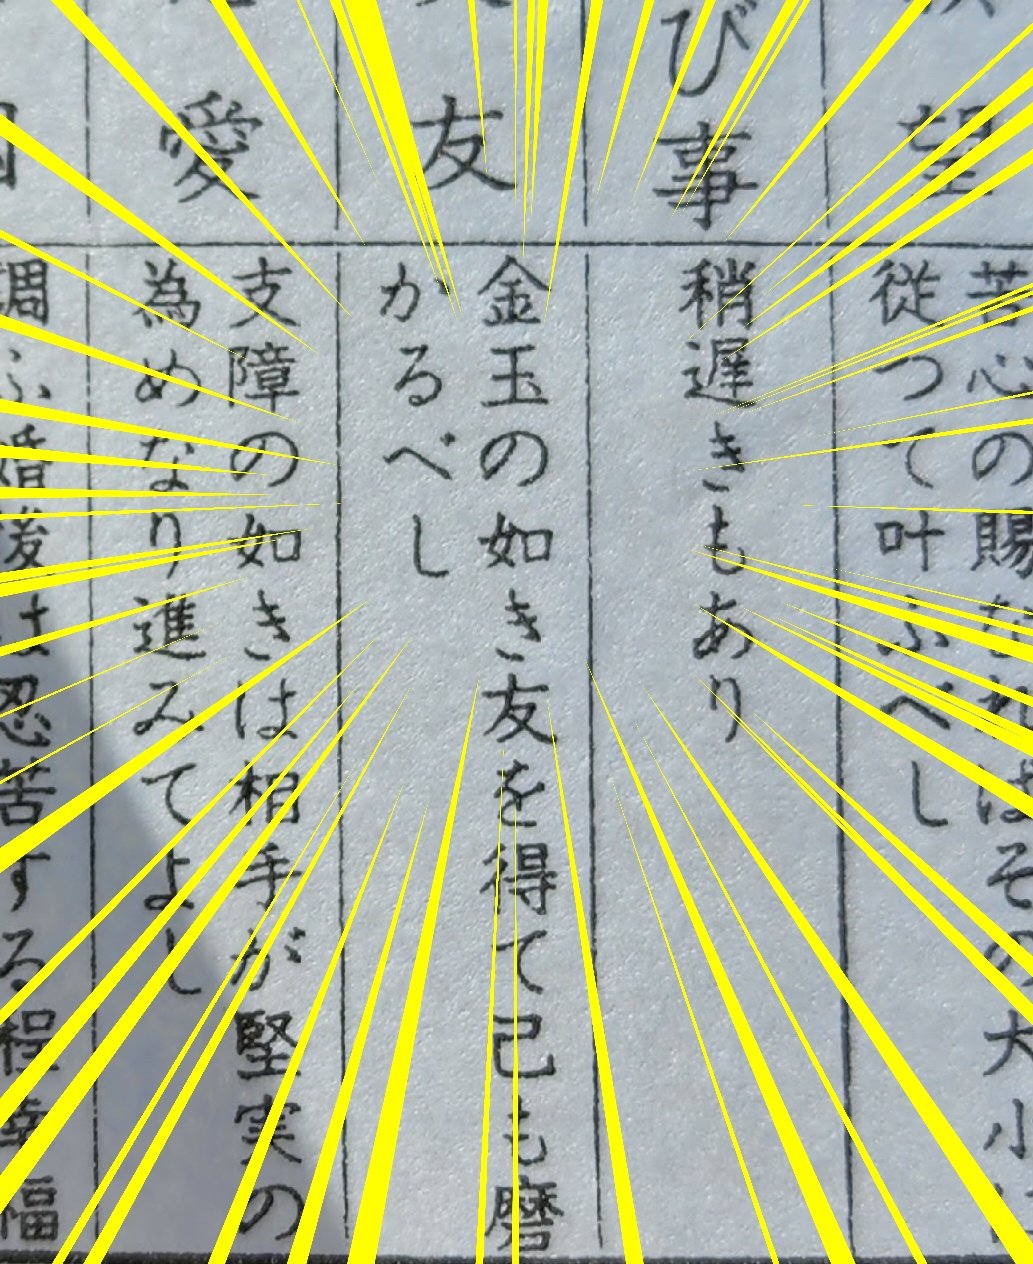 望
苦心の賜なればそ
従つて叶ふべし
び事
稍遅きもあり
友
金玉の如き友を得て己も磨
かるべし
愛
支障の如きは相手が堅実の
為めなり進みてよし
調ふ婚後は忍苦する程幸福